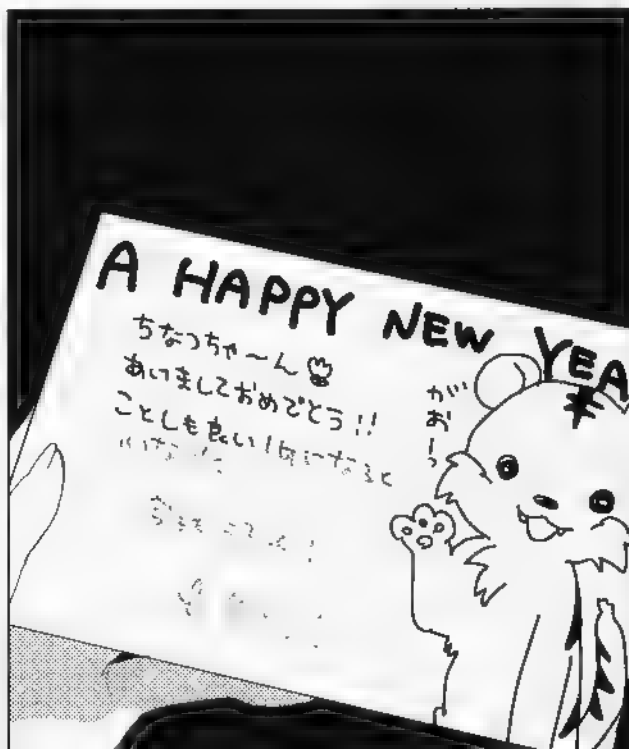 A HAPPY NEW YEA
ちなつちゃ〜ん
あけましておめでとう!!
ことしも良い1年になると
いいな
がお〜っ